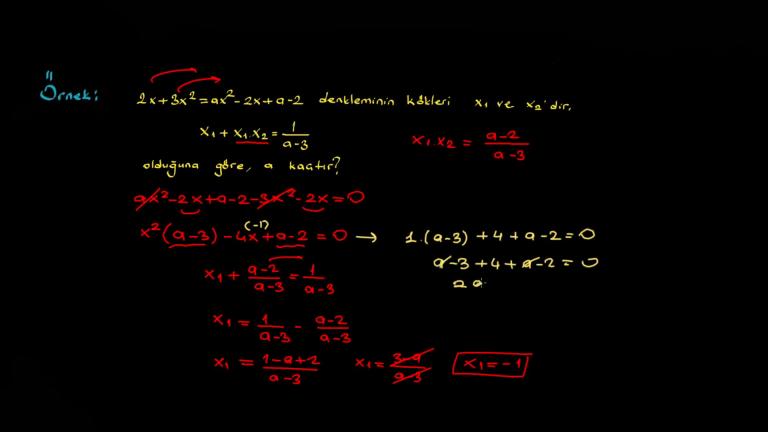 Örnek:
2x+3x²=ax²-2x+a-2 denkleminin kökleri x₁ ve x₂'dir.
x₁+x₁.x₂=1/(a-3)
x₁.x₂=(a-2)/(a-3)
olduğuna göre, a kaçtır?
ax²-2x+a-2-3x²-2x=0
x²(a-3)-4x+a-2=0 → 1.(a-3)+4+a-2=0
(-1)
a-3+4+a-2=0
x₁+(a-2)/(a-3)=1/(a-3)
2a
x₁=1/(a-3)-(a-2)/(a-3)
x₁=(1-a+2)/(a-3) x₁=(3-a)/(a-3) x₁=-1